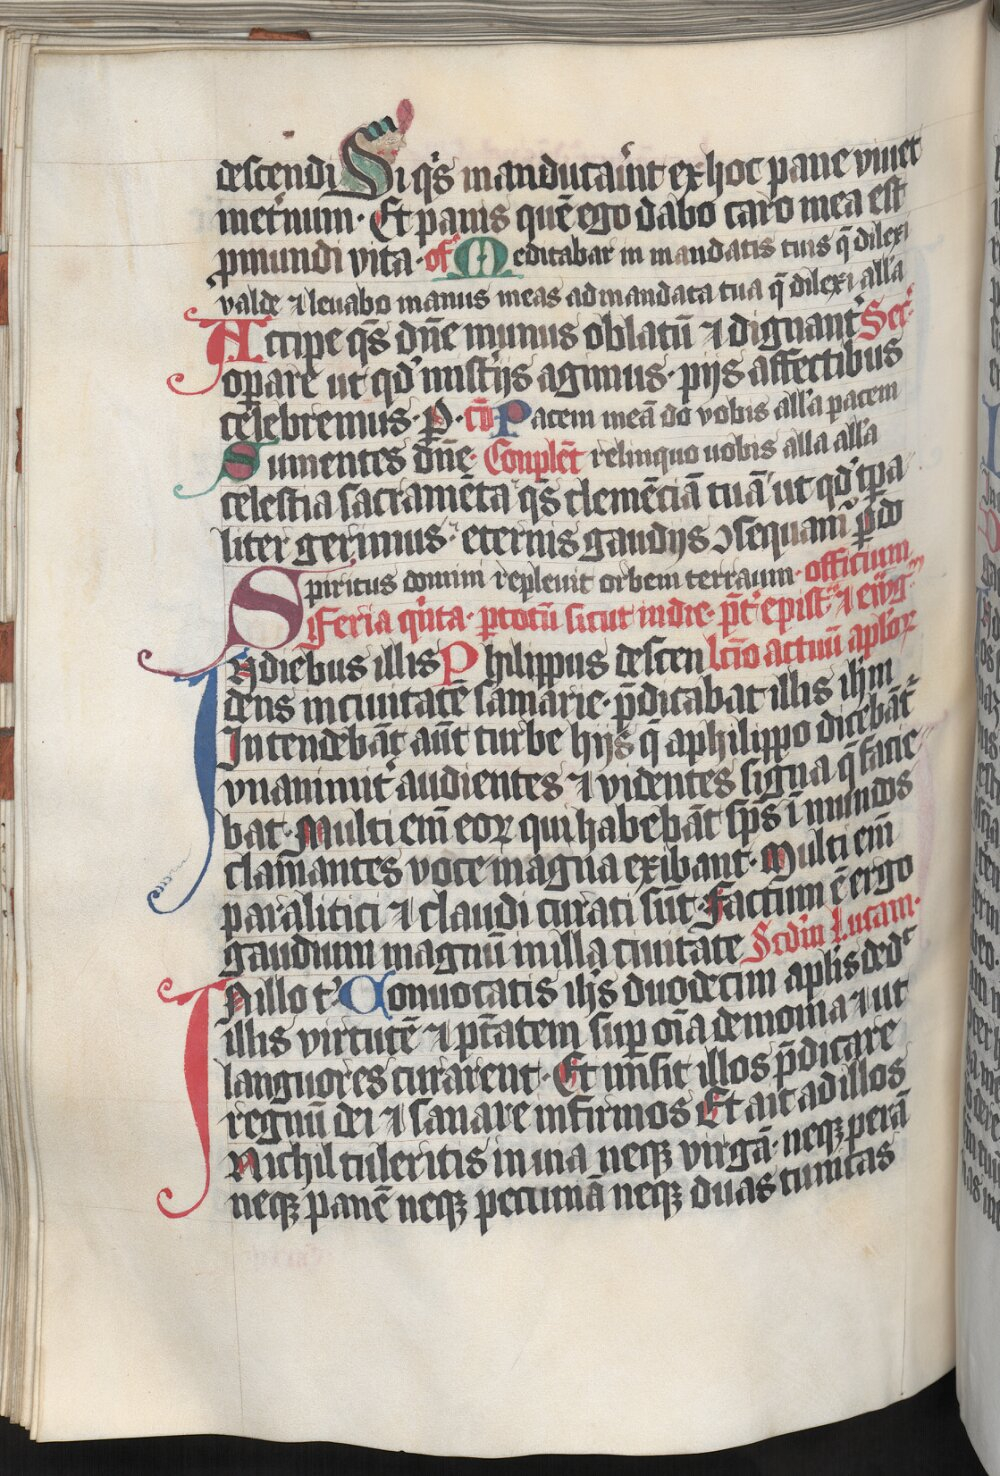 descendi Si q's manducau'it ex hoc pane viuet
in et'num · Et panis quē ego dabo caro mea est
p mundi vita · of Meditabar in mandatis tuis q̄ dilexi
valde ⁊ leuabo manus meas ad mandata tua q̄ dilexi alla
Accipe q̄s dn̄e munus oblatū ⁊ dignant' Sec'
op̄are ut qd' mist'ijs agimus · pijs affectibus
celebremus · P · cō Pacem meā do vobis alla pacem
Sumentes dn̄e · Conplēt relinquo uobis alla alla
celestia sacramēta q̄s clemēciā tuā ut qd' tp̄a
liter gerimus · eternis gaudijs ↄsequam' p̄ dō
Spiritus domini repleuit orbem terrarum · officium
Feria q'nta · p totū sicut in die · p̄t' epist' ⁊ ewg'
In diebus illis Philippus descen lcīo actuū aplōꝝ
dens in ciuitatē samarie · p̄dicabat illis ihm
Intendebāt aūt turbe hijs q̄ a philippo dicebāt'
vnanimit' audientes ⁊ videntes signa q̄ facie
bat · Multi em̄ eoꝝ qui habebāt sp̄s īmundos
clamantes voce magna exibant · Multi em̄
paralitici ⁊ claudi curati sūt · Factum ē ergo
gaudium magnū in illa ciuitate Scd'm Lucam ·
In illo t' Conuocatis ihs duodecim aplīs ded'
illis virtutē ⁊ p̄tatem sup om̄ia demonia ⁊ ut
languores curarent · Et misit illos p̄dicare
regnū dei ⁊ sanare infirmos Et ait ad illos
Nichil tuleritis in uia neqꝫ virgā · neqꝫ perā
neqꝫ panē neqꝫ pecuniā neqꝫ duas tunicas